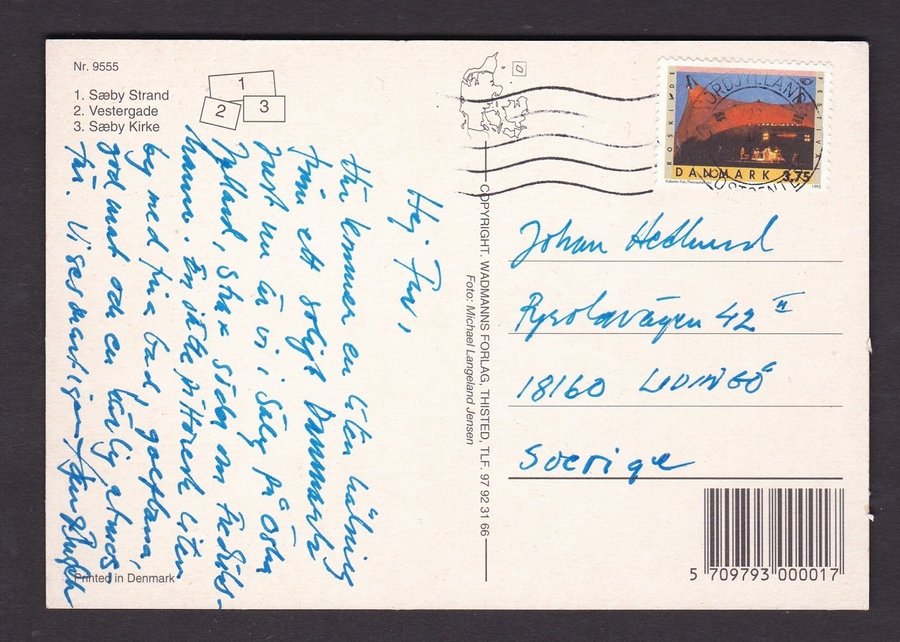 Nr. 9555
1. Sæby Strand
2. Vestergade
3. Sæby Kirke
1
2
3
Hej
Här kommer en liten hälsning
från ett soligt Danmark
Just nu är vi i Sæby på Östra
Jylland, strax söder om Fredriks-
hamn. En jätte pittoresk liten
by med fina bad, golfbana,
god mat och en härlig atmos-
fär. Vi ses
Printed in Denmark
COPYRIGHT. WADMANNS FORLAG, THISTED, TLF. 97 92 31 66
Foto: Michael Langeland Jensen
ROSKILDE FESTIVAL
DANMARK 3,75
1995
NORDJYLLANDS
POSTCENTER
Johan Hedlund
Pyrolavägen 42
18160 LIDINGÖ
Sverige
5 709793 000017